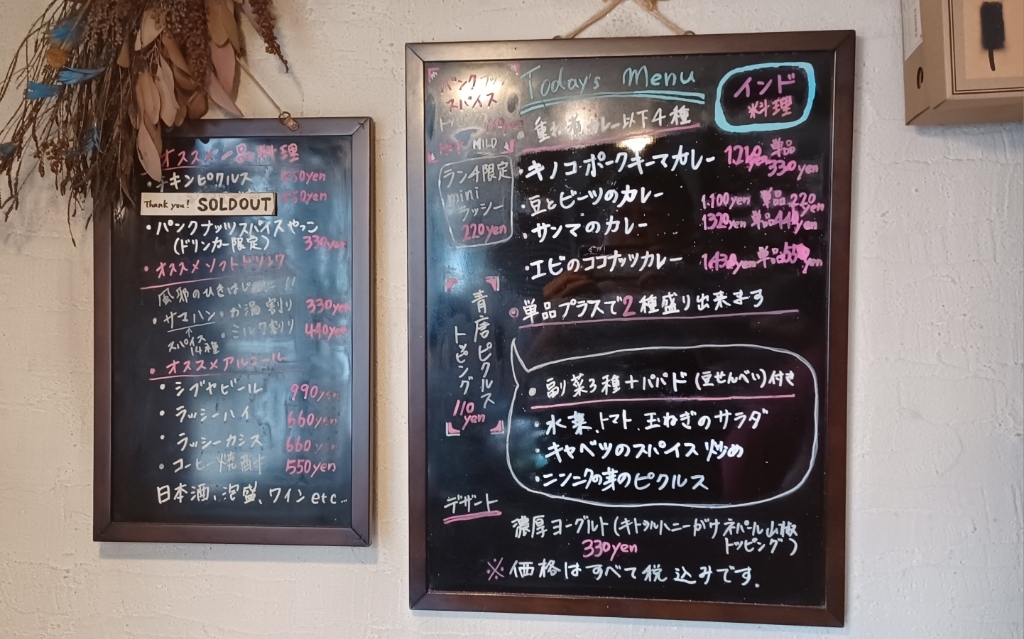 オススメ一品料理
・チキンピクルス 550yen
Thank you! SOLDOUT 550yen
・パンクナッツスパイスやっこ
(ドリンカー限定) 330yen
・オススメソフトドリンク
風邪のひきはじめに!!
・サマハン・お湯割り 330yen
↑ ・ミルク割り 440yen
スパイス
14種
・オススメアルコール
・シブヤビール 990yen
・ラッシーハイ 660yen
・ラッシーカシス 660yen
・コーヒー焼酎 550yen
日本酒、泡盛、ワインetc…
パンクナッツ
スパイス
MILD
ランチ限定
mini
ラッシー
220yen
青唐ピクルス
トッピング
110yen
Today's Menu
インド
料理
カレー以下4種
・キノコ・ポークキーマカレー 1,210yen 単品330yen
・豆とビーツのカレー 1,100yen 単品220yen
・サンマのカレー 1320yen 単品440yen
・エビのココナッツカレー 1,430yen 単品550yen
・単品プラスで2種盛り出来ます
・副菜3種+パパド(豆せんべい)付き
・水菜、トマト、玉ねぎのサラダ
・キャベツのスパイス炒め
・ニンニクの芽のピクルス
デザート
濃厚ヨーグルト(キトラルハニーがけ ネパール山椒
トッピング)
330yen
※価格はすべて税込みです.